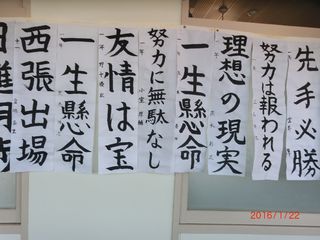 先手必勝
努力は報われる
理想の現実
一生懸命
努力に無駄なし
友情は宝
一生懸命
西張出場
2016/1/22